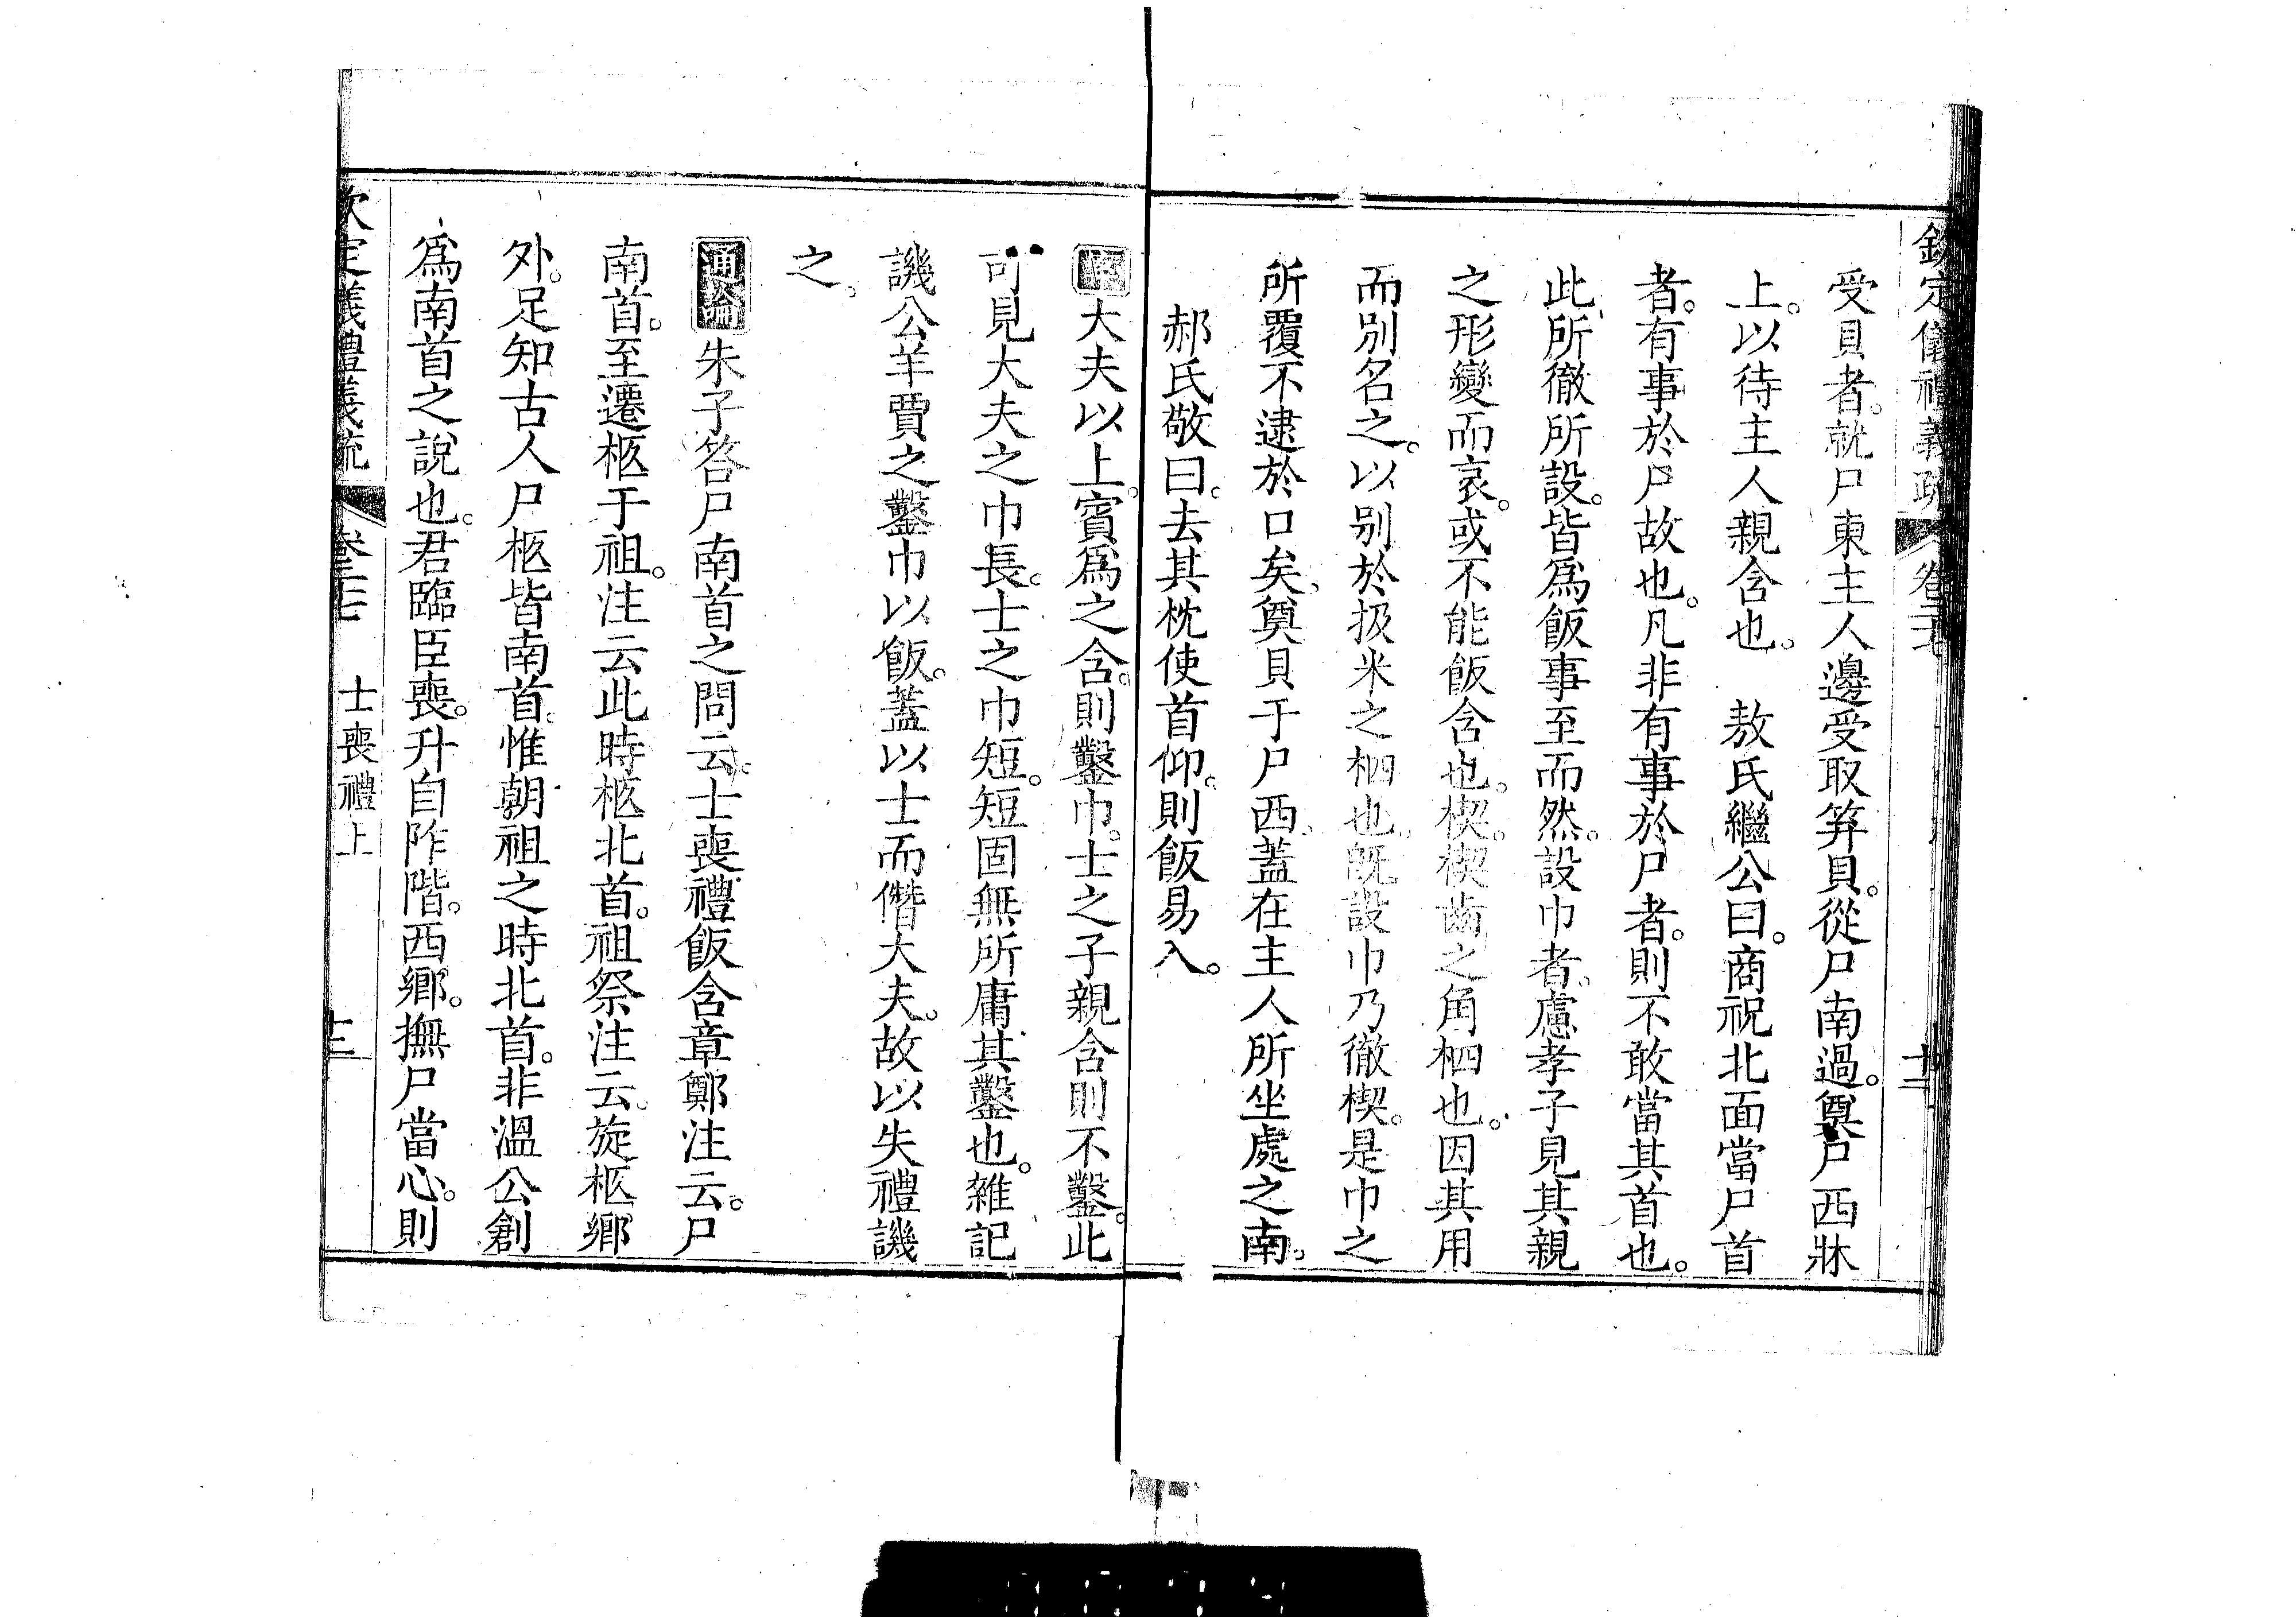 欽定儀禮義疏 卷二十七 十二
受貝者。就尸東主人邊受取筭貝。從尸南過。奠尸西牀
上。以待主人親含也。 敖氏繼公曰。商祝北面當尸首
者。有事於尸故也。凡非有事於尸者。則不敢當其首也。
此所徹所設。皆爲飯事至而然。設巾者。慮孝子見其親
之形變而哀。或不能飯含也。楔。楔齒之角柶也。因其用
而別名之。以別於扱米之柶也。旣設巾乃徹楔。是巾之
所覆不逮於口矣。奠貝于尸西。蓋在主人所坐處之南。
郝氏敬曰。去其枕使首仰。則飯易入。
大夫以上。賓爲之含。則鑿巾。士之子親含則不鑿。此
可見大夫之巾長。士之巾短。短固無所庸其鑿也。雜記
譏公羊賈之鑿巾以飯。蓋以士而僭大夫。故以失禮譏
之。
通論朱子答尸南首之問云。士喪禮飯含章鄭注云。尸
南首。至遷柩于祖。注云此時柩北首。祖祭注云。旋柩鄉
外。足知古人尸柩皆南首。惟朝祖之時北首。非溫公創
爲南首之說也。君臨臣喪。升自阼階。西鄉。撫尸當心。則
欽定儀禮義疏 卷二十七 士喪禮上 十三